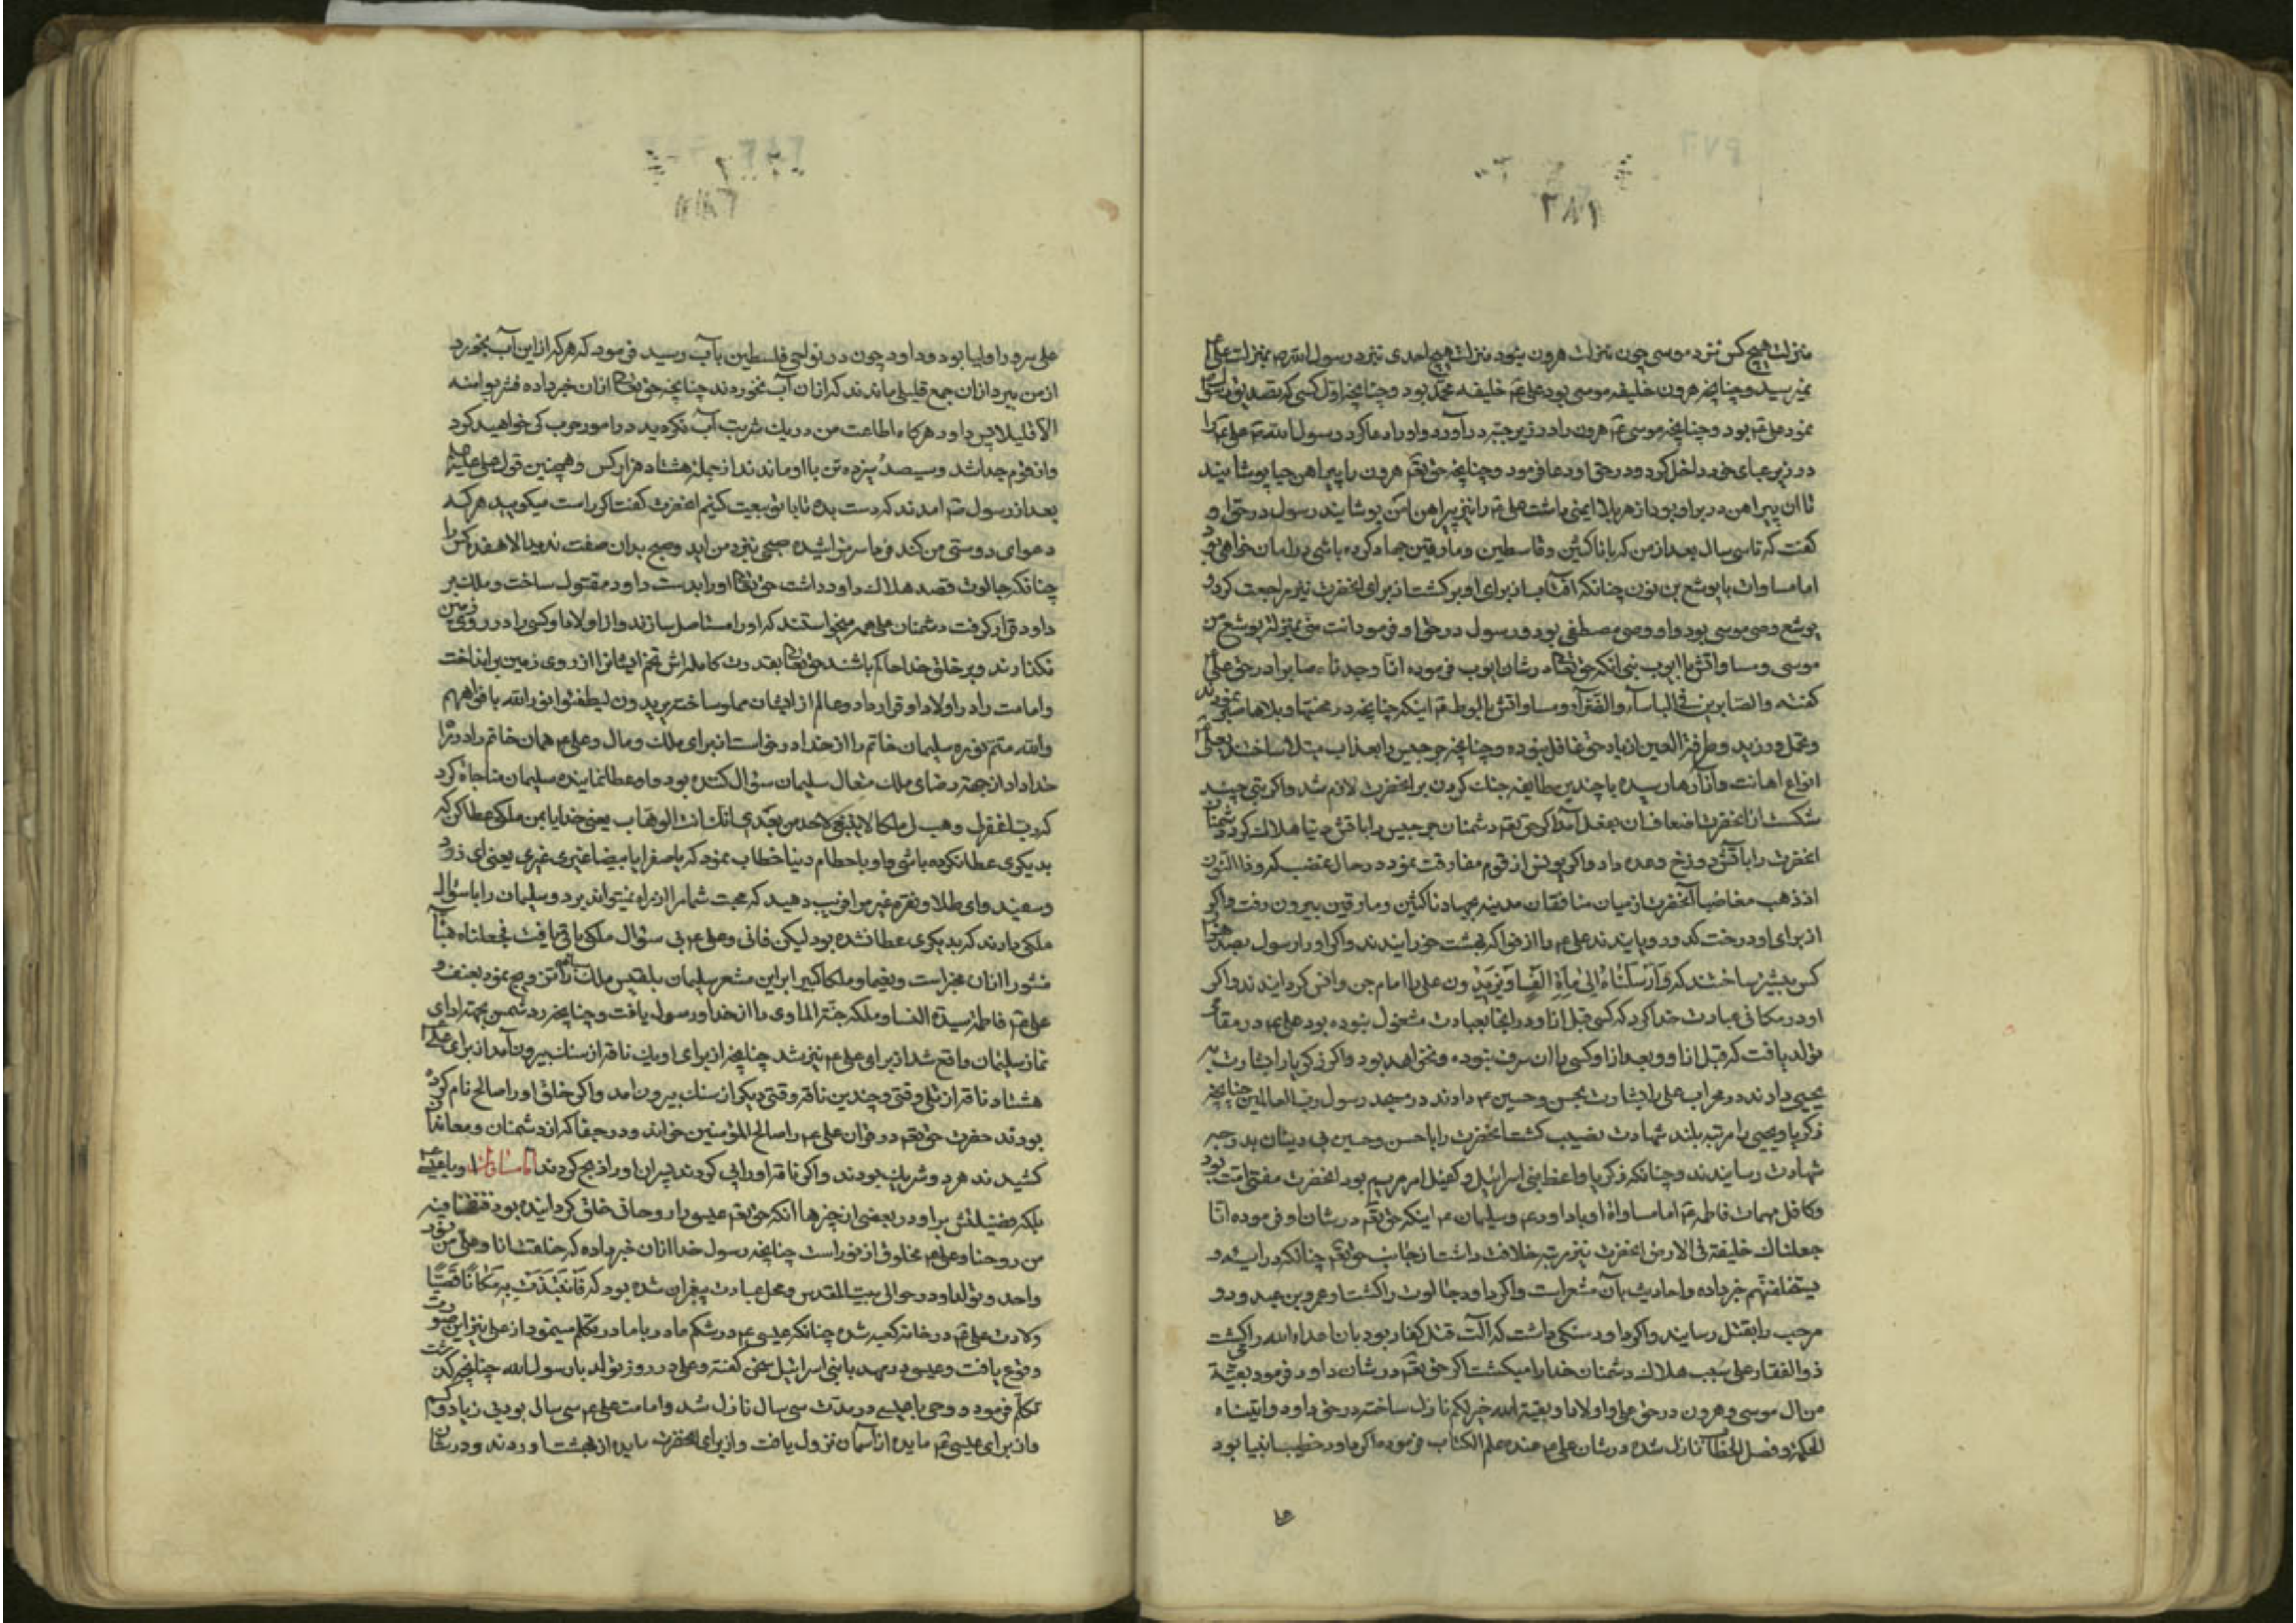 ٣٨١
منزلت هیچ کس نزد موسی چون منزلت هرون نبود منزلت هیچ احدی نزد رسول الله ص بمنزلت علی
نمیرسید و چنانچه هرون خلیفه موسی بود علی ع خلیفه محمد بود و چنانچه اول کسی که تصدیق
نمود علی ع بود و چنانچه موسی ع هرون را در زیر جبه در آورد و او را دعا کرد رسول الله ص علی ع را
در زیر عبای خود داخل کرد و در حق او دعا فرمود و چنانچه حق تعم هرون را پیراهن حیا پوشانید
تا ان پیراهن در بر او بود از هر بلا ایمنی داشت علی ع را نیز پیراهن امن پوشانید رسول در حق او
گفت که تا سی سال بعد از من که با ناکثین و قاسطین و مارقین جهاد کرده باشی در امان خواهی بود
اما مساوات با یوشع بن نون چنانکه افتاب از برای او برکشت از برای انحضرت نیز مراجعت کرد و
یوشع وصی موسی بود و او وصی مصطفی بود و رسول در حق او فرمود انت منی بمنزلة یوشع من
موسی و مساواتش با ایوب نبی انکه حق تعا در شان ایوب فرموده انا وجدناه صابرا در حق علی
گفته والصابرین فی الباساء والضراء و مساواتش با لوط ع اینکه چنانچه در محنتها و بلاها صبر
و تحمل ورزید و طرفة العین از یاد حق غافل نبوده و چنانچه جرجیس را بعذاب مبتلا ساختند بعلی
انواع اهانت و ازارها رسیده با چندین طایفه جنک کردن بر انحضرت لازم شد و اکر بتی چند
شکست از انحضرت اضعاف ان بعمل آمد اکر حق تعم دشمنان جرجیس را باتش دنیا هلاک کرد دشمنان
انحضرت را باتش دوزخ وعده داد و اکر یونس از قوم مفارقت نمود در حال غضب که وذا النون
اذ ذهب مغاضبا آنحضرت از میان منافقان مدینه بجهاد ناکثین و مارقین بیرون رفت و اکر
از برای او درخت کدو رویانیدند علی ع را از فواکه بهشت خورانیدند و اکر او را رسول بصد هزار
کس بیشتر ساختند که وَاَرسَلناهُ اِلی مِأَةِ اَلفٍ اَو یَزیدُون علی را امام جن و انس کردانیدند و اکر
او در مکانی عبادت خدا کرد که کسی قبل ازا و در انجا بعبادت مشغول نبوده بود علی ع در مقامی
تولد یافت که قبل ازا و و بعد ازا و کسی باان شرف نبوده و نخواهد بود و اکر زکریا را بشارت به
یحیی دادند در محراب علی را بشارت بحسن و حسین ع دادند در مسجد رسول رب العالمین چنانچه
زکریا و یحیی را مرتبه بلند شهادت نصیب کشت انحضرت را با حسن و حسین بدرجه
شهادت رسانیدند و چنانکه زکریا واعظ بنی اسرائیل و کفیل امر مریم بود انحضرت مفتی امت بود
و کافل مهمات فاطمه ع اما مساواة او با داود ع و سلیمان ع اینکه حق تعم در شان او فرموده انا
جعلناک خلیفة فی الارض انحضرت نیز مرتبه خلافت داشت از جانب حق تعم چنانکه در ایه و
یستخلفنهم خبر داده و احادیث بآن مشعر است و اکر داود جالوت را کشت او عمرو بن عبدود و
مرحب را بقتل رسانید و اکر داود سنکی داشت که آلت قتل کفار بود بان اعداء الله را میکشت
ذوالفقار علی سبب هلاک دشمنان خدا را میکشت اکر حق تعم در شان داود فرمود بقیة
من ال موسی و هرون در حق علی و اولاد او بقیة الله خیر لکم نازل ساخته در حق داود و اتیناه
الحکمة و فصل الخطاب نازل شده در شان علی ع عنده علم الکتاب فرمود و اکر داود خطیب انبیا بود
علی سرور اولیا بود و داود چون در نواحی فلسطین بآب رسید فرمود که هر که از این آب بخورد
از من ببرد ازان جمع قلیلی ماندند که ازان آب نخوردند چنانچه حق تعا ازان خبر داده فشربوا منه
الا قلیلا پس داود هرکاه اطاعت من در یک شربت آب نکردید در امور حرب کی خواهید کرد
وازقوم جدا شد و سیصد و سیزده تن با او ماندند از جمله هشتاد هزار کس و همچنین قول علی علیه
بعد از رسول ص امدند که دست بده تا با تو بیعت کنیم انحضرت کفت اکر راست میکویید هر که
دعوای دوستی من کند فردا سر تراشیده صبح نزد من اید و صبح بدان صفت ندید الا هفده کس را
چنانکه جالوت قصد هلاک داود داشت حق تعا او را بدست داود مقتول ساخت و ملک بر
داود قرار کرفت دشمنان علی همه میخواستند که او را مستاصل سازند و از اولاد او کسی را در روی زمین
نکذارند و بر خلق خدا حاکم باشند حق تعا بقدرت کامله اش تخم ایشانرا از روی زمین برانداخت
و امامت را در اولاد او قرار داد و عالم از ایشان مملو ساخت یریدون لیطفئوا نور الله بافواههم
والله متم نوره سلیمان خاتم را از خدا درخواست از برای ملک و مال و علی ع همان خاتم را در راه
خدا داد از جهة رضای ملک متعال سلیمان سؤال کننده بود و او عطا نماینده سلیمان مناجاة کرد
که رب اغفرلی و هب لی ملکا لا ینبغی لاحد من بعدی انک انت الوهاب یعنی خدایا بمن ملکی عطا کن که
بدیکری عطا نکرده باشی و او باحطام دنیا خطاب نمود که یا صفرا یا بیضا غیری یعنی ای زرد
و سفید و ای طلا و نقره غیر مرا فریب دهید که محبت شما مرا از راه نمیتواند برد و سلیمان را با سؤال
ملکی دادند که بدیکری عطا نشده بود لیکن فانی و علی ع بی سؤال ملکی باقی یافت فجعلناه هباء
منثورا ازان مخبر است و نعیما و ملکا کبیرا بر این مشعر سلیمان بلقیس ملکه سبا را تزویج نمود بعنف و
علی ع فاطمه سیدة النسا و ملکه جنة الماوی را از خدا و رسول یافت و چنانچه رد شمس بجهة ادای
نماز سلیمان واقع شد از برای علی ع نیز شد چنانچه از برای او یک ناقه از سنک بیرون آمد از برای علی
هشتاد ناقه از تلی وقتی و چندین ناقه وقتی دیکر از سنک بیرون امد و اکر خلق او را صالح نام کرده
بودند حضرت حق تعم در قران علی ع را صالح المؤمنین خواند و در جفا که از دشمنان و معاندان
کشیدند هر دو شریک بودند و اکر ناقه او را پی کردند پسران او را ذبح کردند اما مساوات او با عیسی
بلکه فضیلتش بر او در بعضی از چیزها انکه حق تعم عیسی را روحانی خلق کردانیده بود فنفخنا فیه
من روحنا و علی ع مخلوق از نور است چنانچه رسول خدا ازان خبر داده که خلقت انا و علی من نور
واحد و تولد او در حوالی بیت المقدس و محل عبادت پیغمبران شده بود که فَانتَبَذَت بِهِ مَکاناً قَصِیّاً
ولادت علی ع در خانه کعبه شده چنانکه عیسی ع در شکم مادر با مادر تکلم مینمود از علی نیز این صورت
وقوع یافت و عیسی در مهد با بنی اسرائیل سخن کفته و علی در روز تولد با رسول الله چنانچه کذشت
تکلم فرمود و وحی با عیسی در مدت سی سال نازل شد و امامت علی ع سی سال بود بی زیاد و کم
و از برای عیسی ع مایده از آسمان نزول یافت و از برای انحضرت مایده از بهشت اوردند و در شان